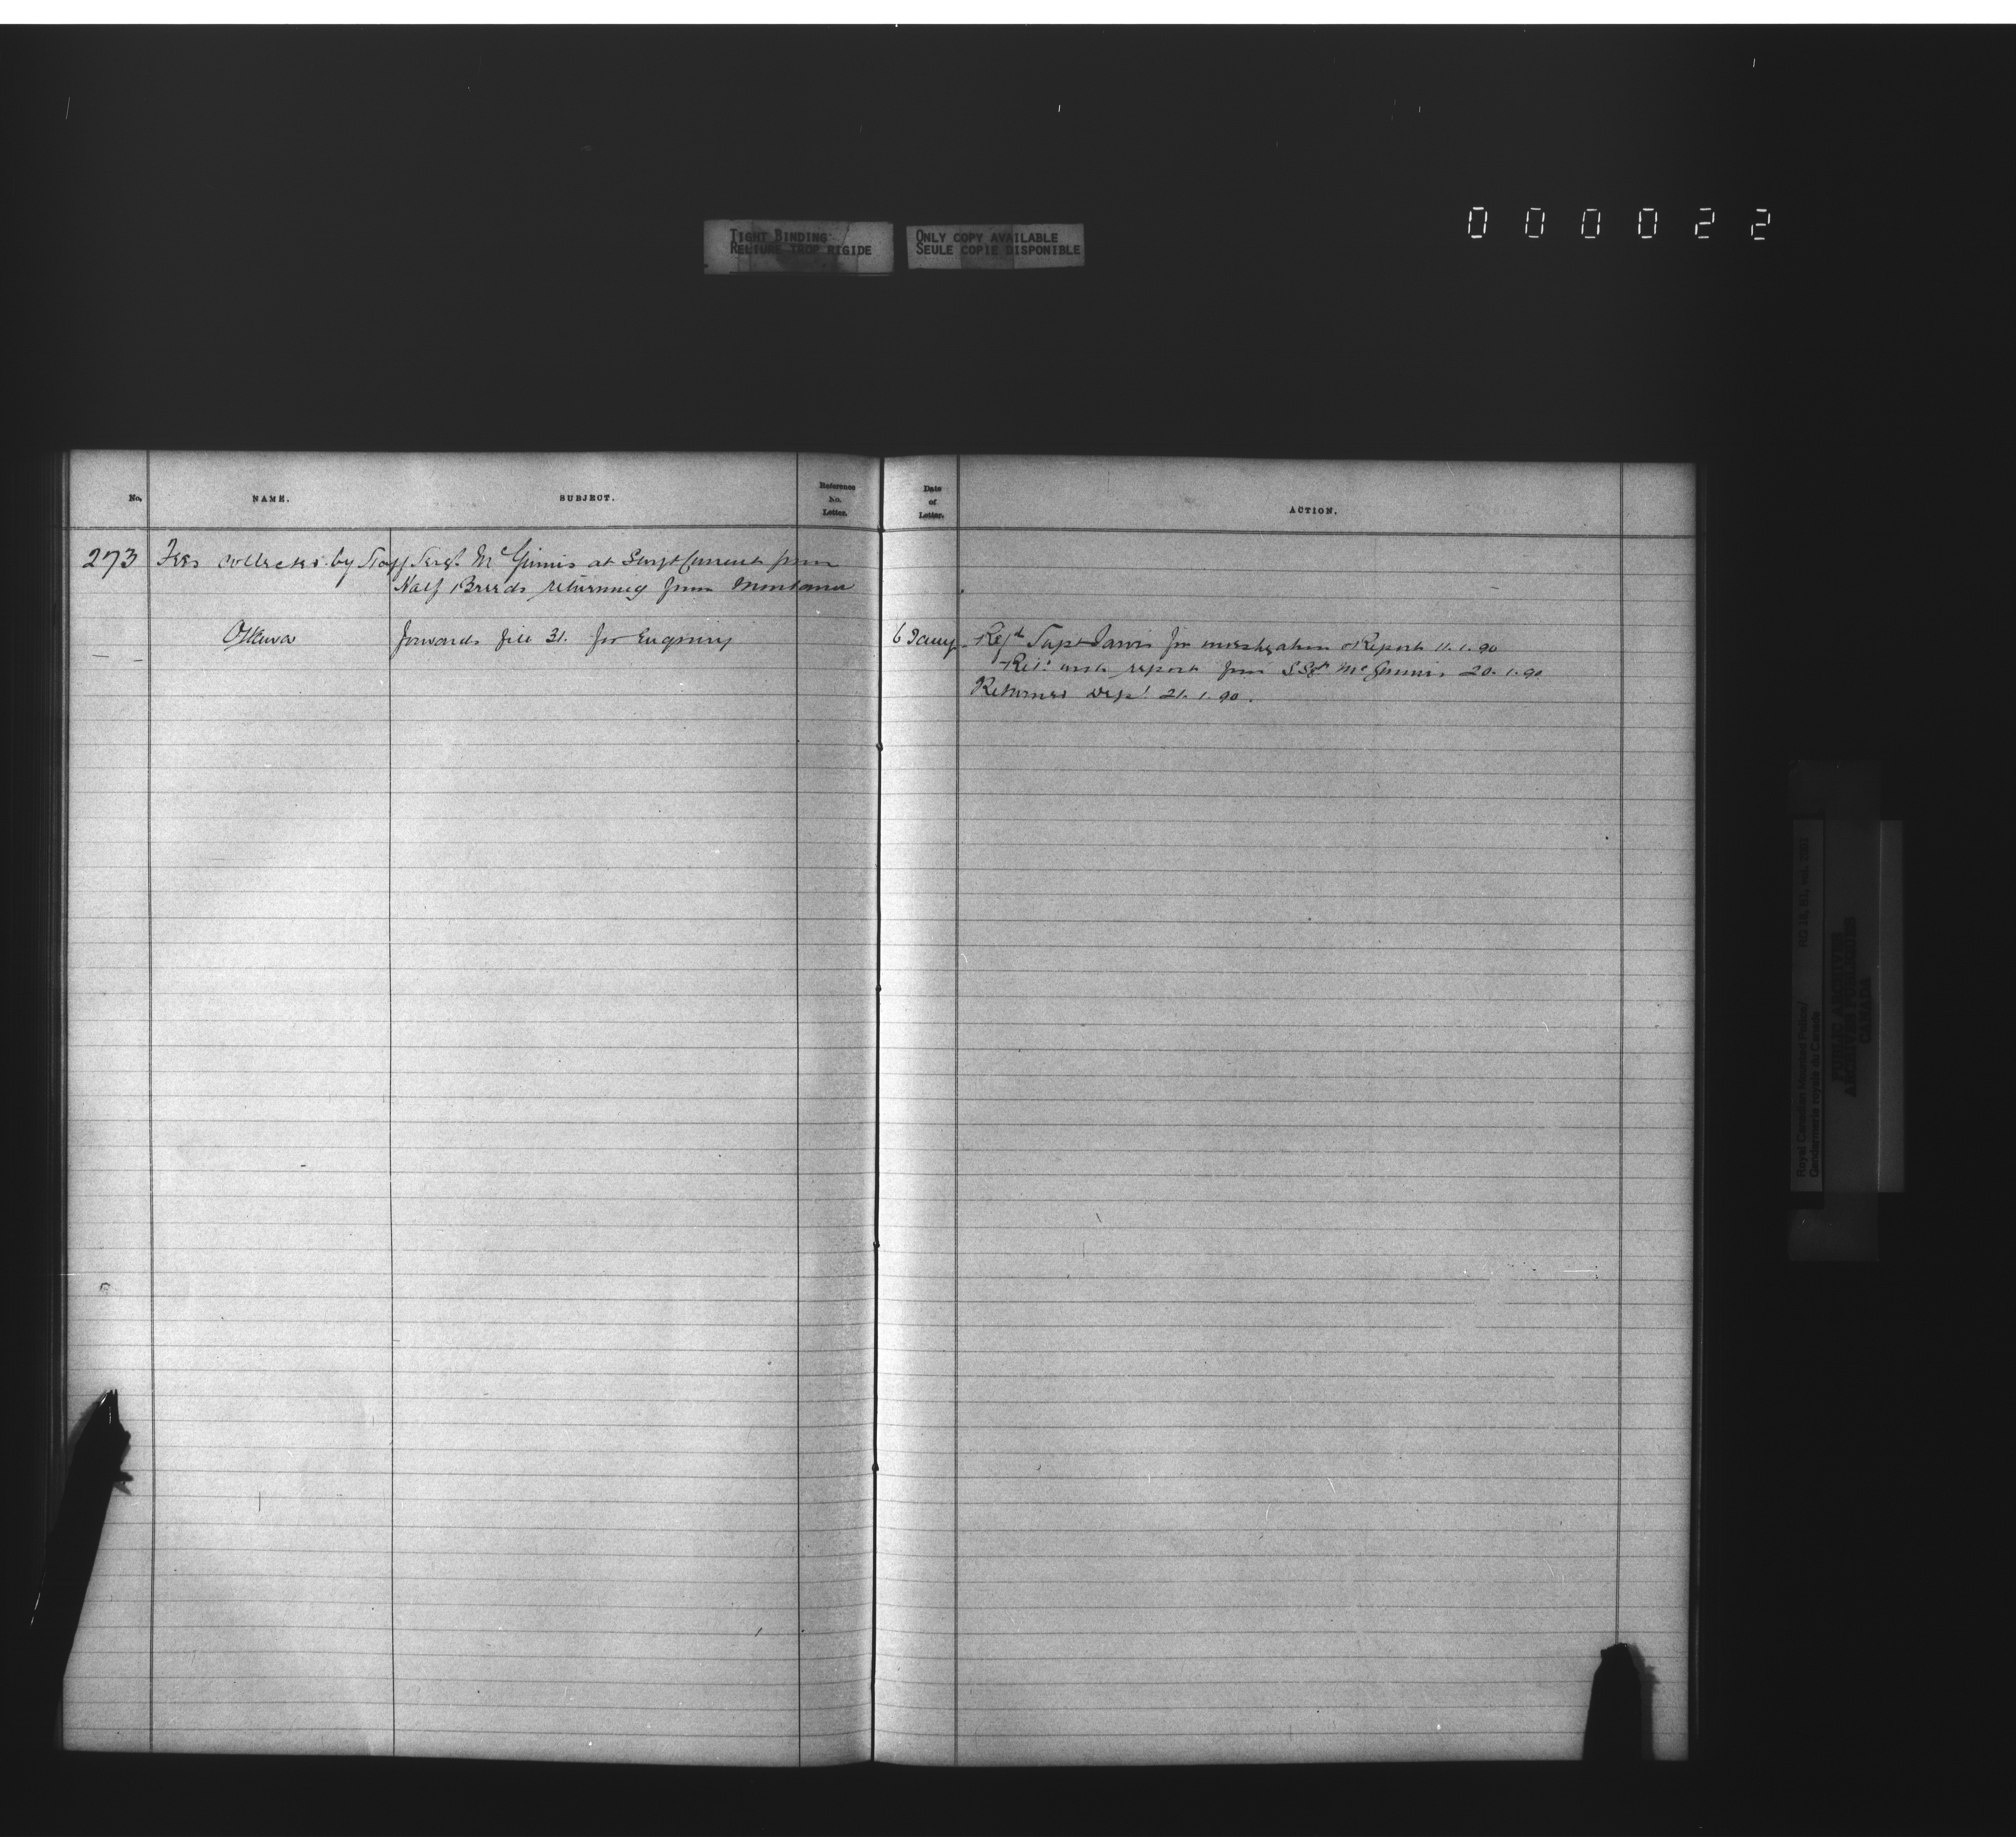 TIGHT BINDING
RELIURE TROP RIGIDE
ONLY COPY AVAILABLE
SEULE COPIE DISPONIBLE
000022
No.
NAME.
SUBJECT.
Reference
No.
Letter.
Date
of
Letter.
ACTION.
273 Fees collected by Staff Sergt McGinnis at Swift Current from
Half Breeds returning from Montana
Ottawa forwards file 31. for Enquiry 6 Jany Refd Supt Jarvis for investigation & Report 11.1.90
Retd with report from S.Sgt McGinnis 20.1.90
Returned Dept 21.1.90.
Royal Canadian Mounted Police/
Gendarmerie royale du Canada
RG 18, B1, vol.
PUBLIC ARCHIVES
ARCHIVES PUBLIQUES
CANADA